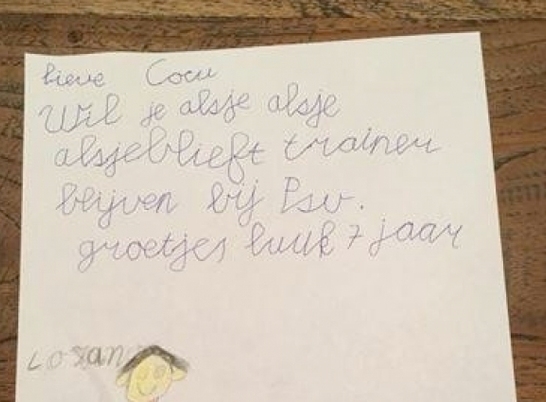 lieve Cocu
Wil je alsje alsje
alsjeblieft trainer
blijven bij Psv.
groetjes luuk 7 jaar
Lozano